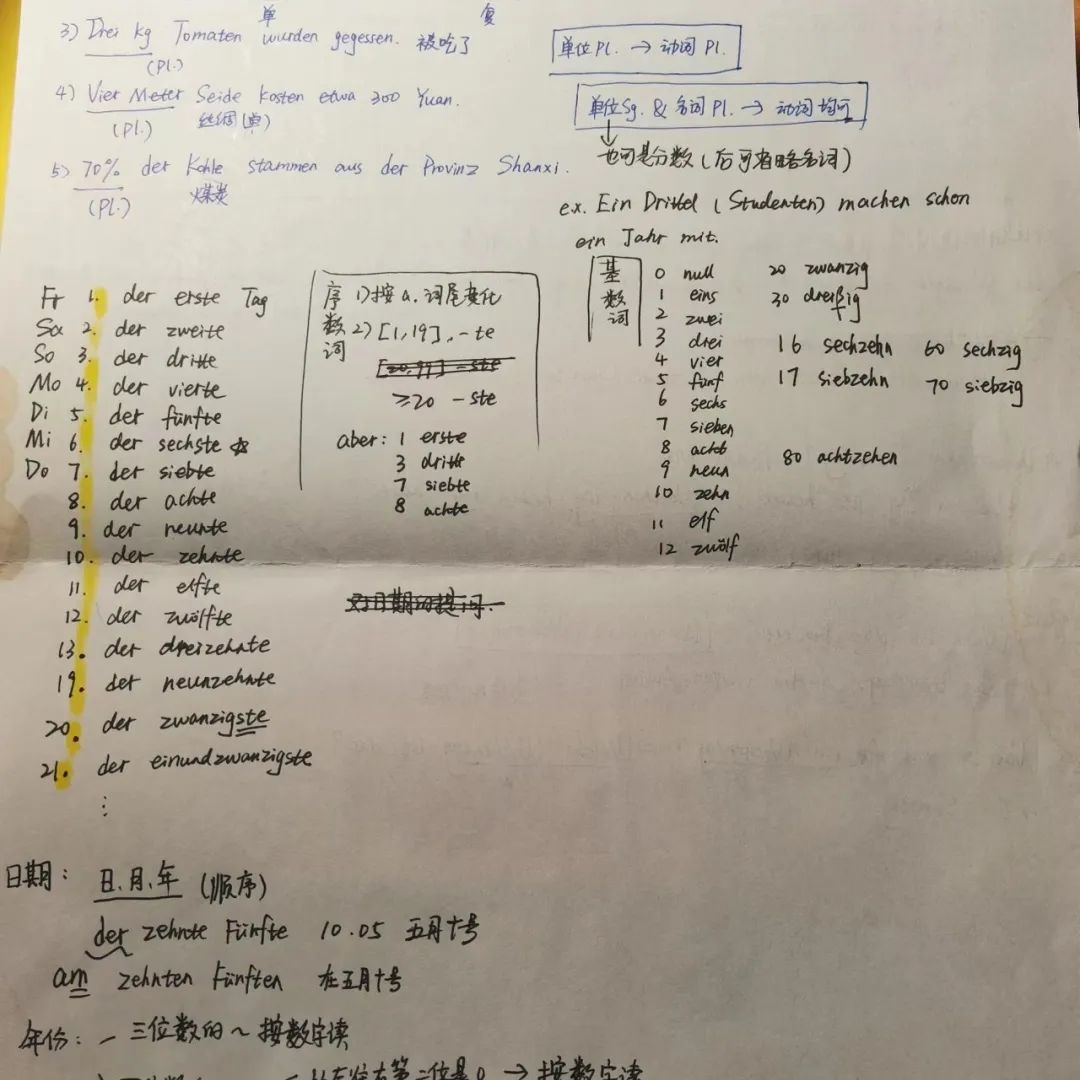 单 复
3) Drei kg Tomaten wurden gegessen. 被吃了
(Pl.)
4) Vier Meter Seide kosten etwa 300 Yuan.
(Pl.) 丝绸(单)
5) 70% der Kohle stammen aus der Provinz Shanxi.
(Pl.) 煤炭
单位Pl. → 动词 Pl.
单位Sg. & 名词 Pl. → 动词 均可
也可是分数(后可省略名词)
ex. Ein Drittel (Studenten) machen schon
ein Jahr mit.
Fr 1. der erste Tag
Sa 2. der zweite
So 3. der dritte
Mo 4. der vierte
Di 5. der fünfte
Mi 6. der sechste ☆
Do 7. der siebte
8. der achte
9. der neunte
10. der zehnte
11. der elfte
12. der zwölfte
13. der dreizehnte
19. der neunzehnte
20. der zwanzigste
21. der einundzwanzigste
⋮
序数词
1)按a.词尾变化
2) [1,19], -te
[20,99] -ste
≥20 -ste
aber: 1 erste
3 dritte
7 siebte
8 achte
基数词
0 null
1 eins
2 zwei
3 drei
4 vier
5 fünf
6 sechs
7 sieben
8 acht
9 neun
10 zehn
11 elf
12 zwölf
20 zwanzig
30 dreißig
16 sechzehn 60 sechzig
17 siebzehn 70 siebzig
80 achtzehen
日期: 日.月.年 (顺序)
der zehnte Fünfte 10.05 五月十号
am zehnten Fünften 在五月十号
年份: 三位数的~按数字读
从左往右第二位是0 → 按数字读